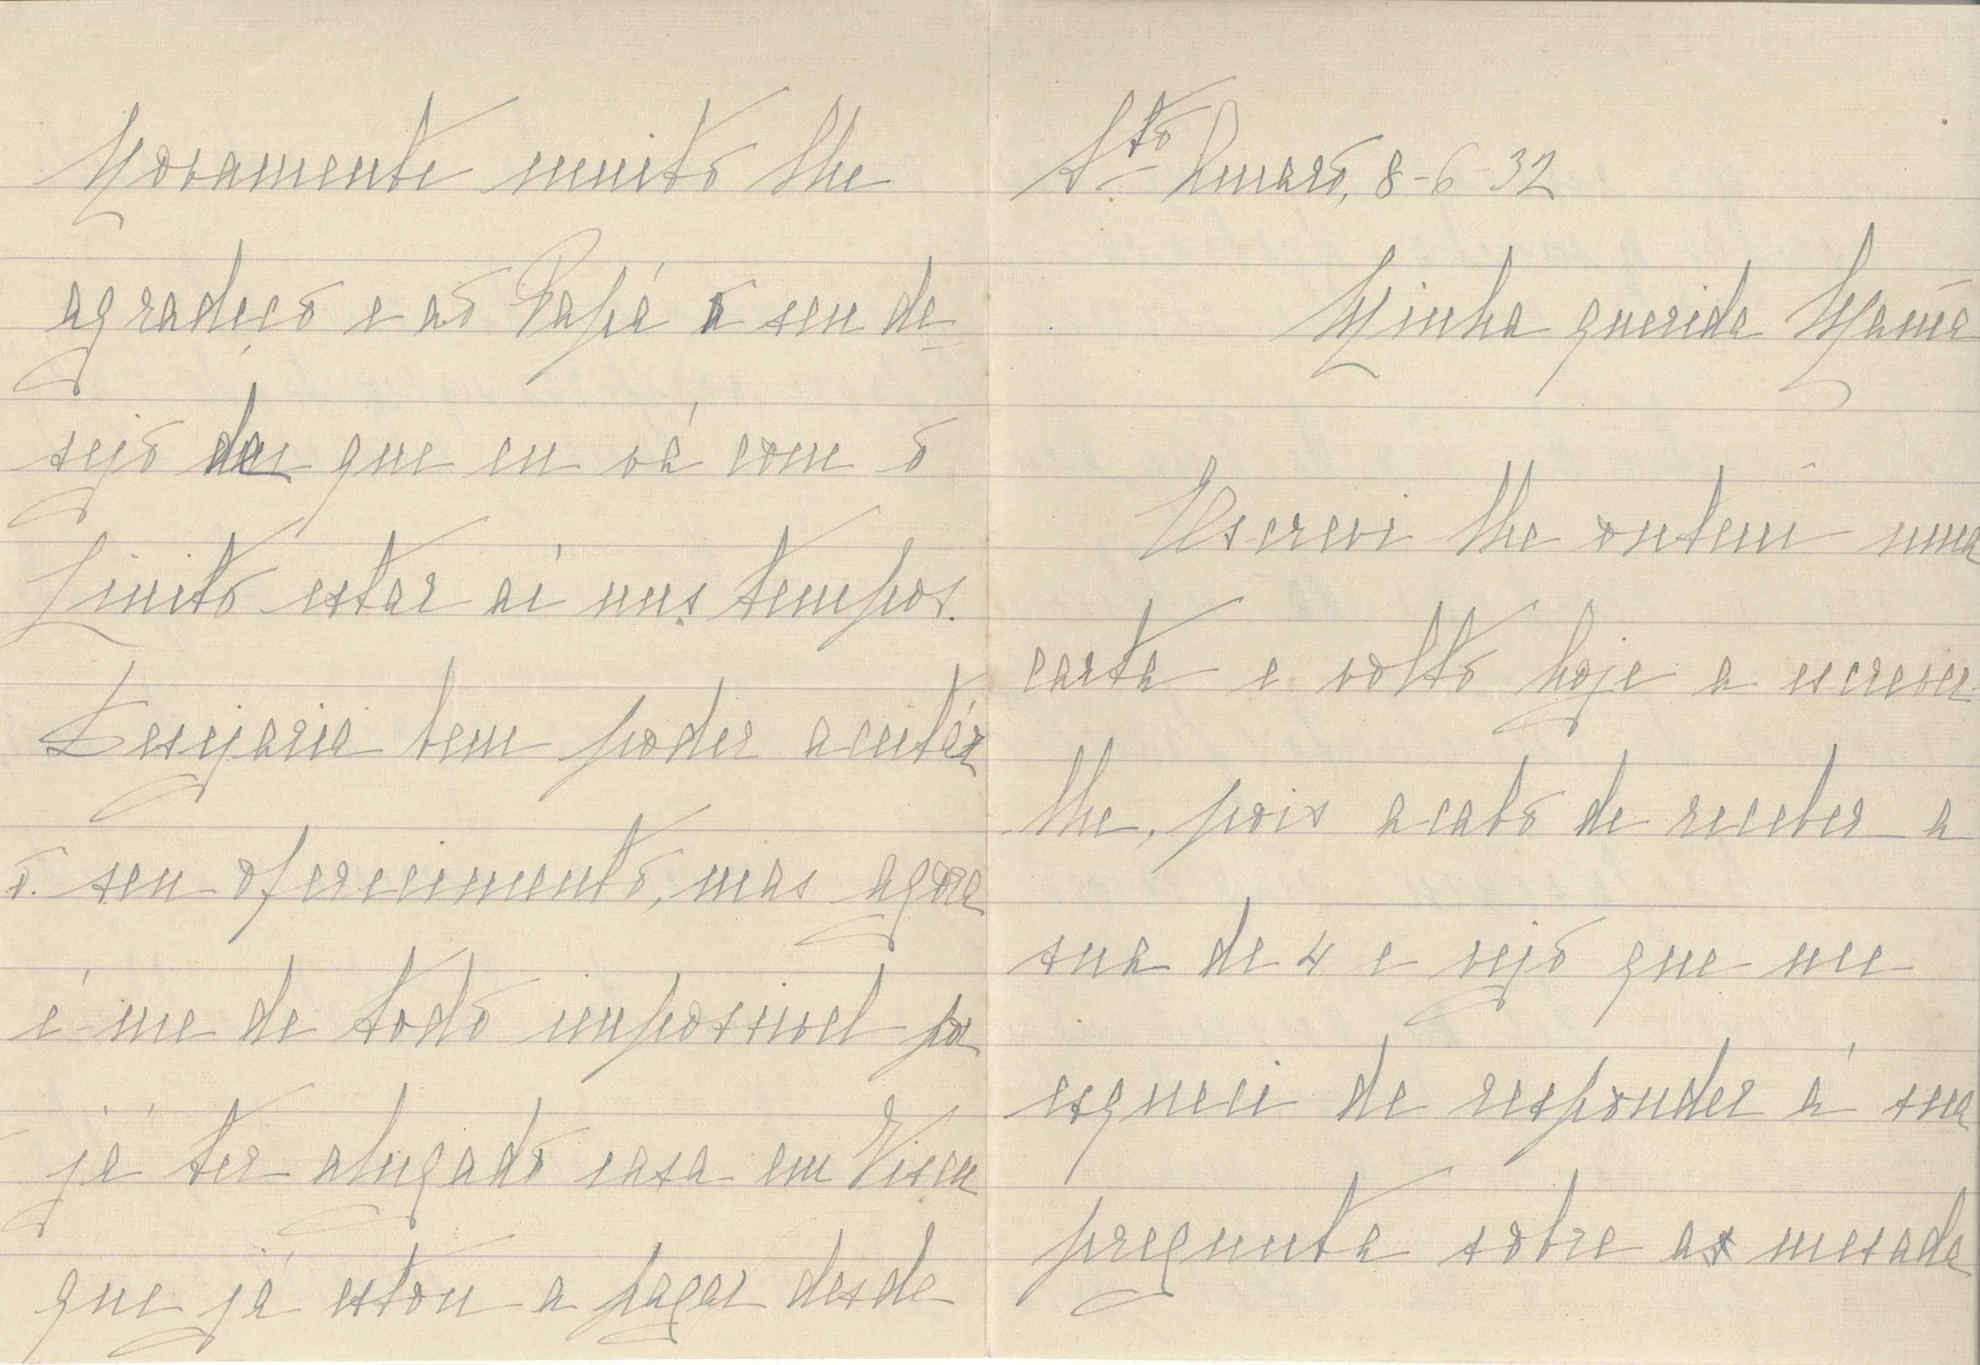 Sto Amaro, 8-6-32
Minha querida Mamã
Escrevi lhe ontem uma
carta e volto hoje a escrever
lhe, pois acabo de receber a
sua de 4 e vejo que me
esqueci de responder á sua
pregunta sobre a mesada
Novamente muito lhe
agradeço e ao Papá o seu de-
sejo de que eu vá com o
Linito estar aí uns tempos.
Desejaria bem poder aceitar
o seu oferecimento, mas agora
é-me de todo impossivel por
já ter alugado casa em Viseu
que já estou a pagar desde